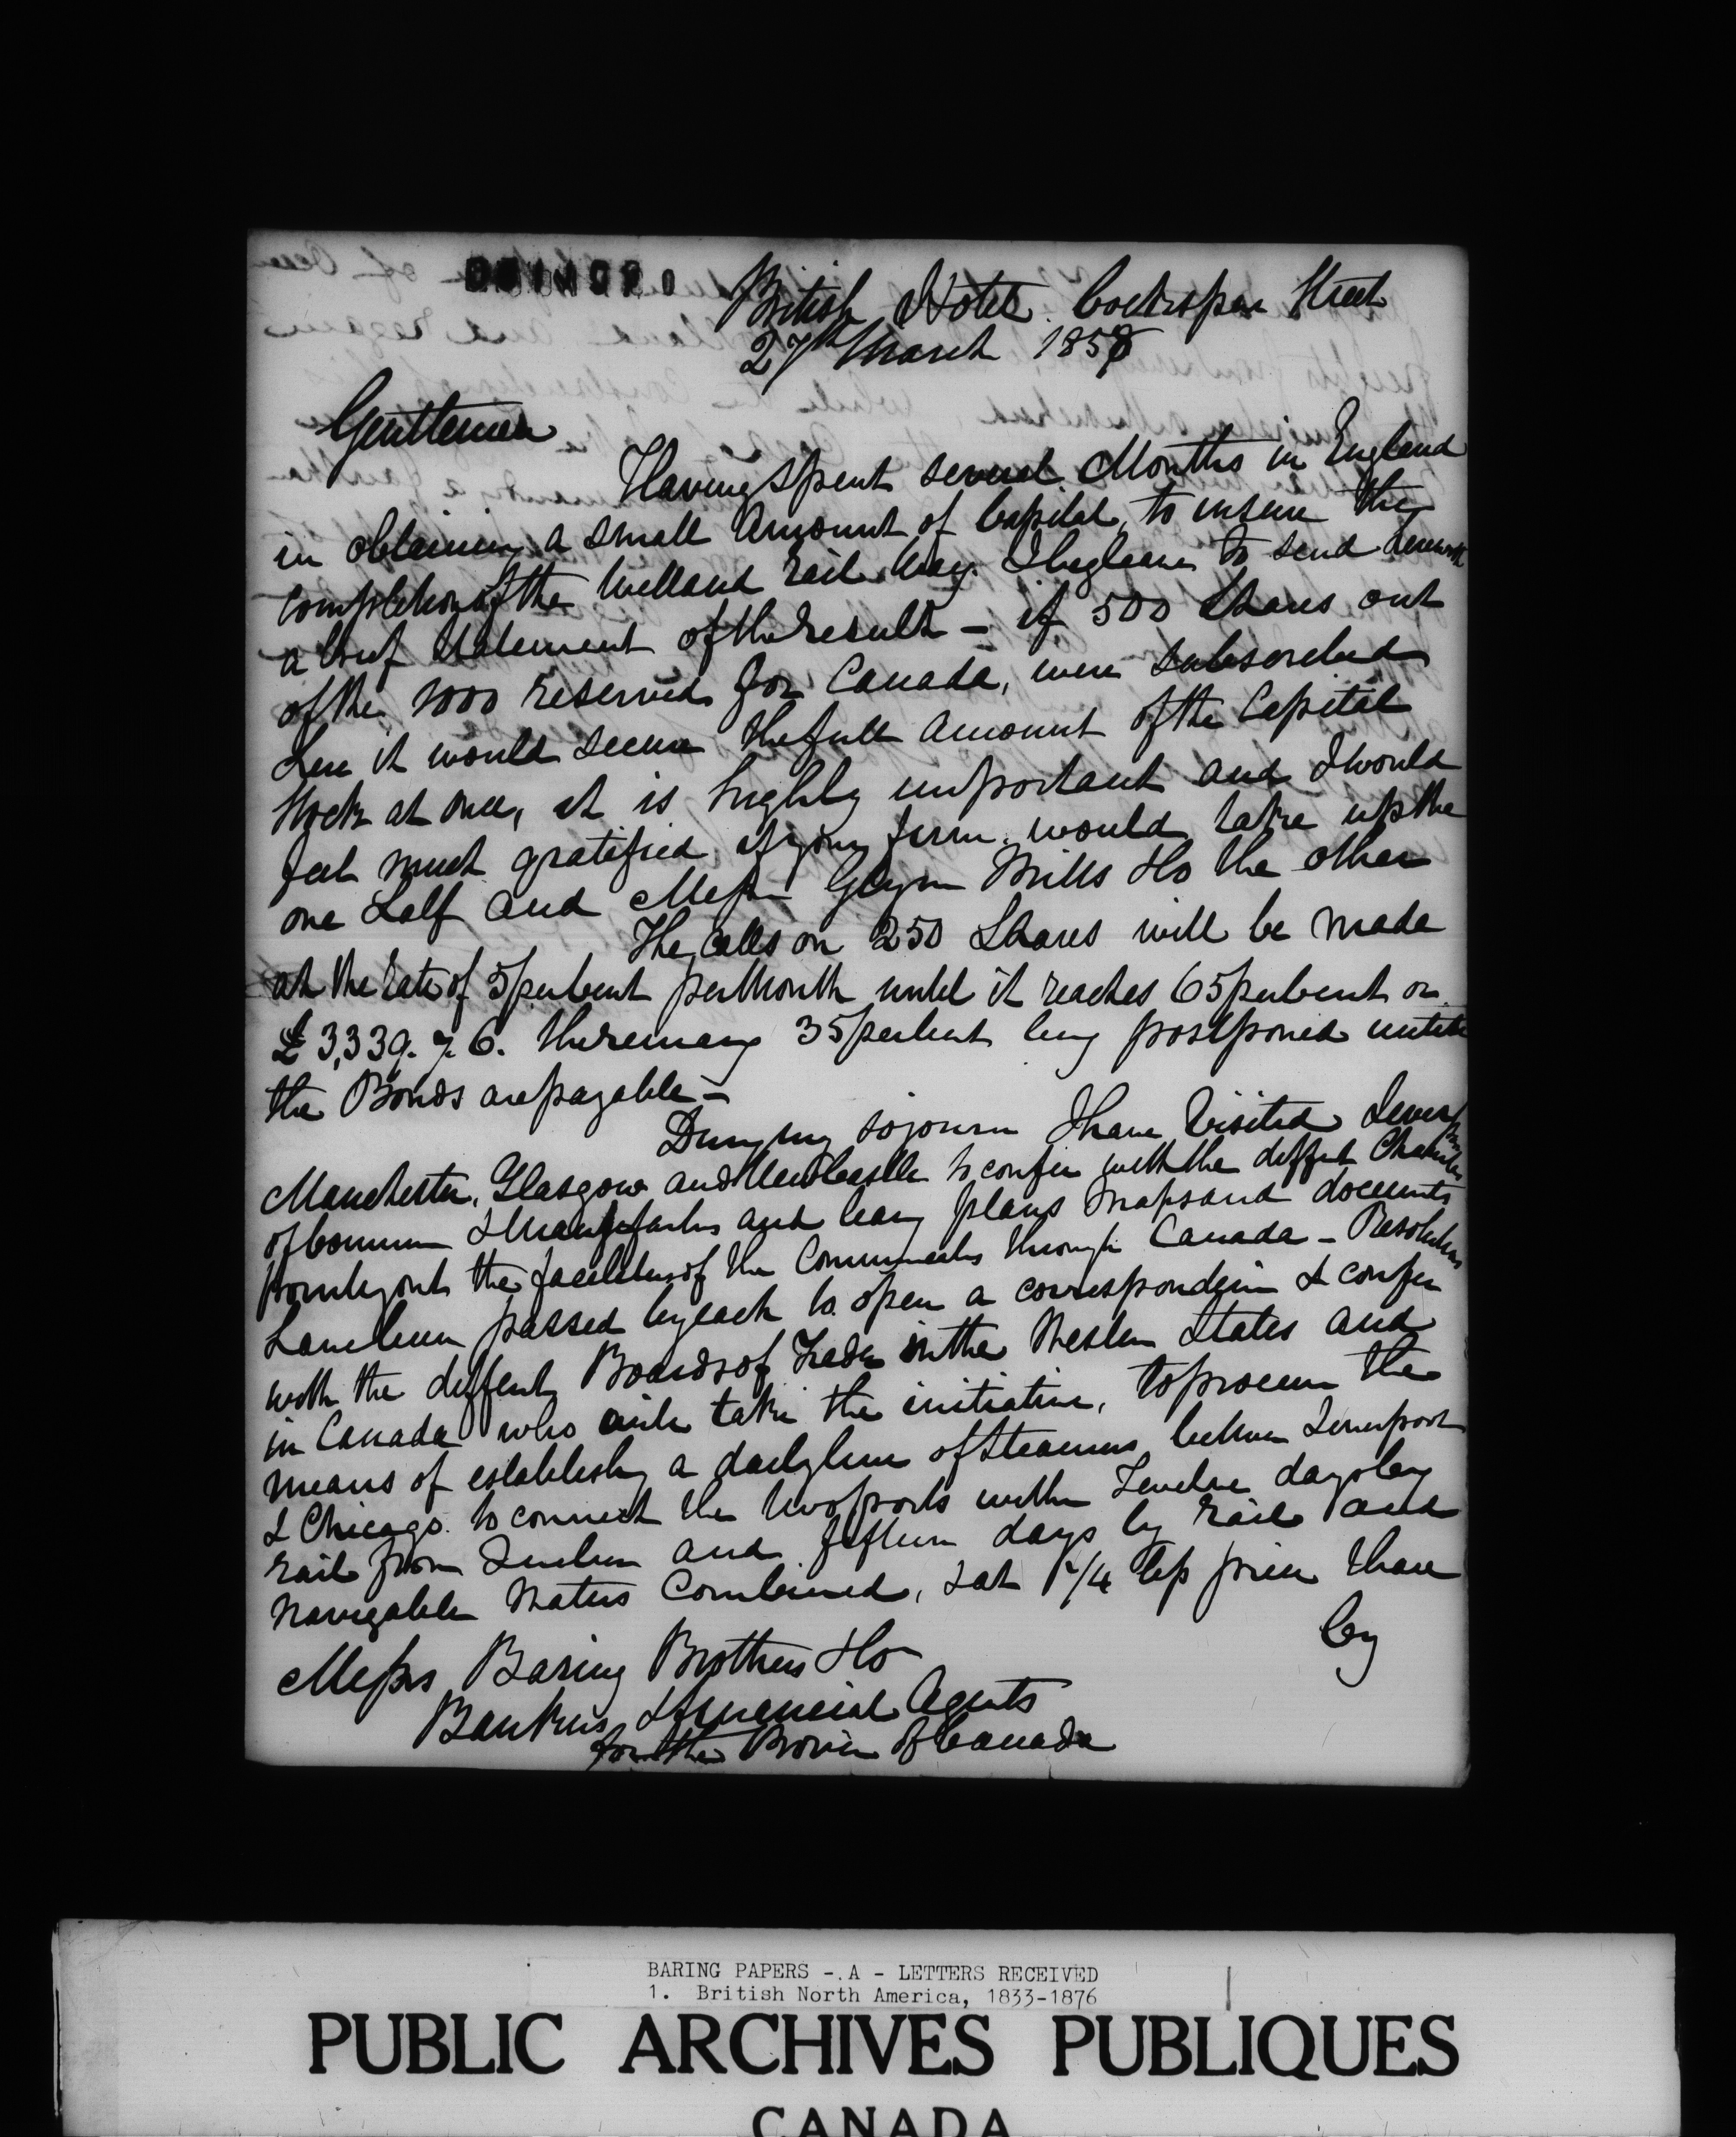 British Hotel Cockspur Street
27th March 1858
Gentlemen
Having spent several Months in England
in obtaining a small Amount of Capital, to insure the
completion of the Welland Rail Way. I beg leave to send herewith
a brief Statement of the result – if 500 Shares out
of the 1000 reserved for Canada, were subscribed
here it would secure the full amount of the Capital
Stock at once, it is highly important and I would
feel much gratified if your firm would take up the
one half and Messrs Glynn Mills & Co the other
The calls on 250 Shares will be made
at the rate of 5 per Cent per Month until it reaches 65 per Cent or
£ 3,339. 7. 6. the remaing 35 per Cent being postponed untill
the Bonds are payable –
During my sojourn I have visited Liverpool
Manchester, Glasgow and NewCastle to confer with the diffent Chambers
of Commerce & Manufactures and leavg plans Maps and documents
pointing out the facilities of the through Canada – Resolutions
have been passed by each to open a & confer
with the diffent Boards of Trade in the Western States and
in Canada who will take the initiative, to procure the
means of establishing a daily line of Steamers between Liverpool
& Chicago to connect the two ports within Twelve days by
rail from Quebec and fifteen days by rail and
Navigable Waters Combined, & at 1/4 less price than
by
Messrs Baring Brothers & Co
Bankers & financial Agents
for the Provin of Canada
BARING PAPERS - A - LETTERS RECEIVED
1. British North America, 1833-1876
PUBLIC ARCHIVES PUBLIQUES
CANADA